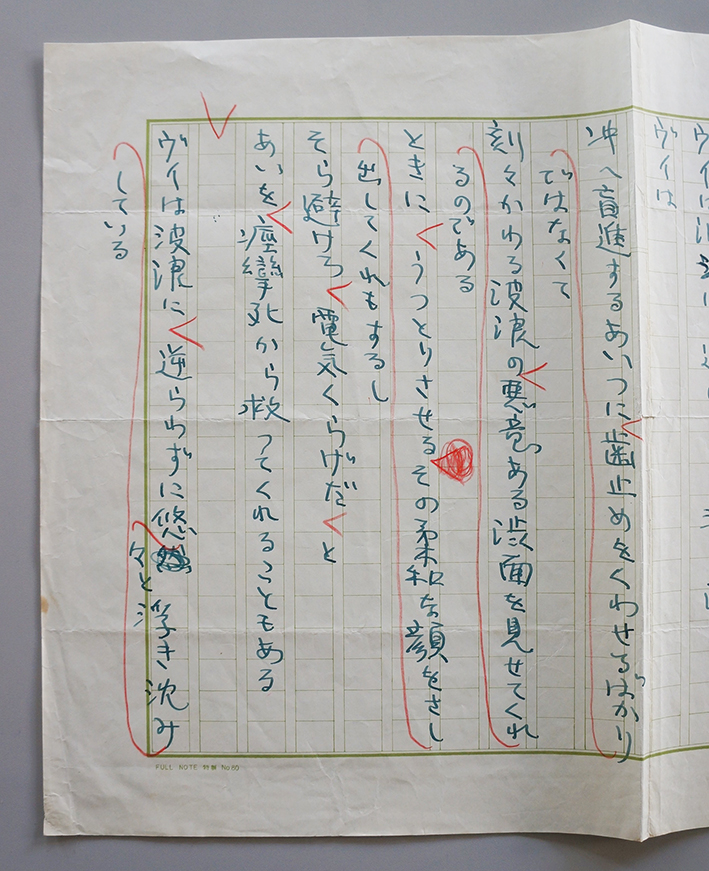 ヴイは
沖へ盲進するあいつに歯止めをくわせるばかり
ではなくて
刻々かわる波浪の悪意ある渋面を見せてくれ
るのである
ときに うっとりさせる その柔和な顔をさし
出してくれもするし
そら避けろ 電気くらげだ と
あいを 痙攣死から救ってくれることもある
ヴイは波浪に 逆らわずに悠々と浮き沈み
している
FULL NOTE 特製 No60